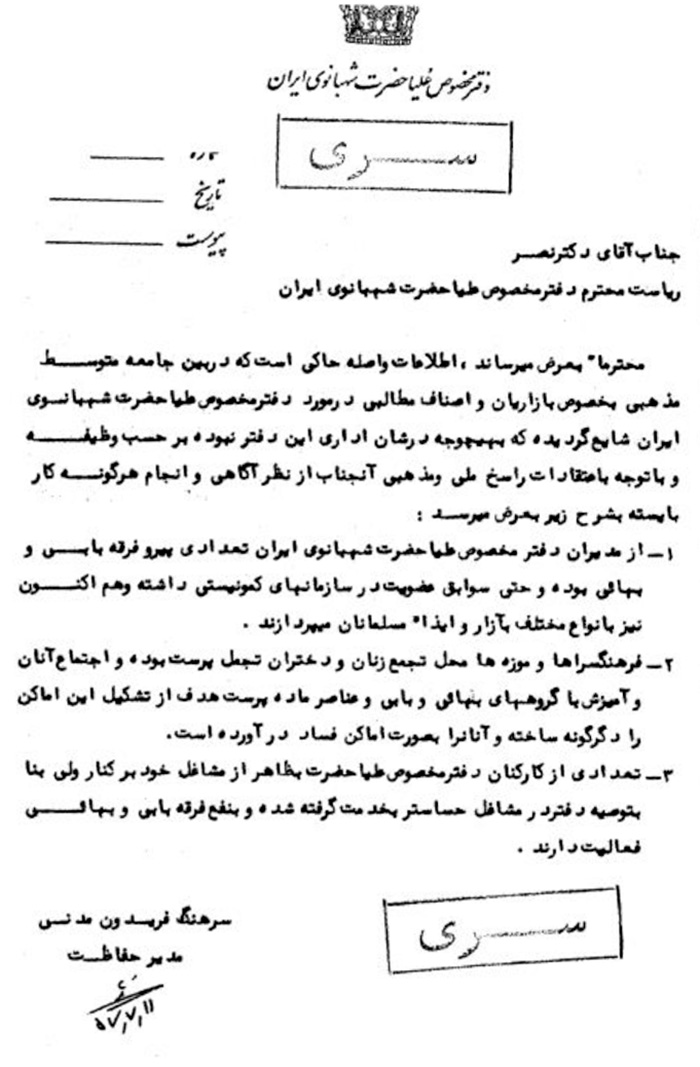 دفتر مخصوص علیاحضرت شهبانوی ایران
سری
تاریخ
پیوست
جناب آقای دکتر نصر
ریاست محترم دفتر مخصوص علیاحضرت شهبانوی ایران
محترما" بعرض میرساند ، اطلاعات واصله حاکی است که در بین جامعه متوسط
مذهبی بخصوص بازاریان و اصناف مطالبی در مورد دفتر مخصوص علیاحضرت شهبانوی
ایران شایع گردیده که بهیچوجه در شان اداری این دفتر نبوده بر حسب وظیفه
و با توجه باعتقادات راسخ ملی و مذهبی آنجناب از نظر آگاهی و انجام هرگونه کار
بایسته بشرح زیر بعرض میرسد :
۱ـ از مدیران دفتر مخصوص علیاحضرت شهبانوی ایران تعدادی پیرو فرقه بابی و
بهائی بوده و حتی سوابق عضویت در سازمانهای کمونیستی داشته وهم اکنون
نیز با نواع مختلف بآزار و ایذاء مسلمانان میپردازند .
۲ـ فرهنگسراها و موزه ها محل تجمع زنان و دختران تجمل پرست بوده و اجتماع آنان
و آمیزش با گروههای بهائی و بابی و عناصر ماده پرست هدف از تشکیل این اماکن
را دگرگونه ساخته و آنانرا بصورت اماکن فساد در آورده است.
۳ـ تعدادی از کارکنان دفتر مخصوص علیاحضرت بظاهر از مشاغل خود بر کنار ولی بنا
بتوصیه دفتر در مشاغل حساستر بخدمت گرفته شده و بنفع فرقه بابی و بهائی
فعالیت دارند .
سرهنگ فریدون مدنی
مدیر حفاظت
۵۷٫۷٫۱۱
سری